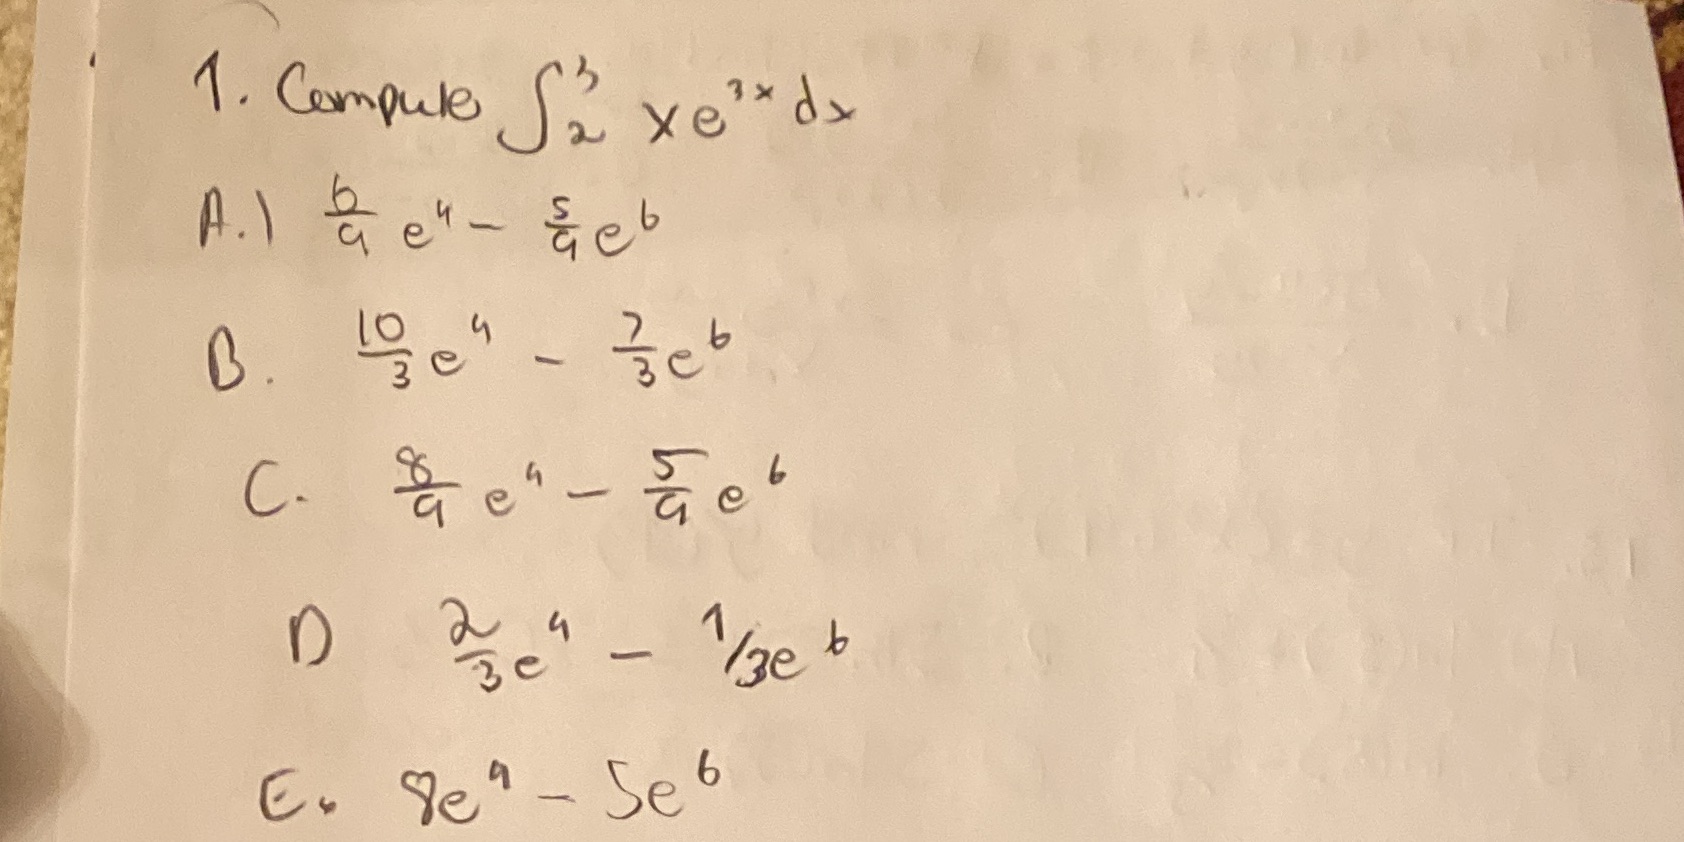 1. Compute ∫₂³ xe³ˣ dx
A.) 6/9 e⁹ - 5/9 e⁶
B. 10/3 e⁹ - 7/3 e⁶
C. 8/9 e⁹ - 5/9 e⁶
D 2/3 e⁹ - 1/3 e⁶
E. 8e⁹ - 5e⁶